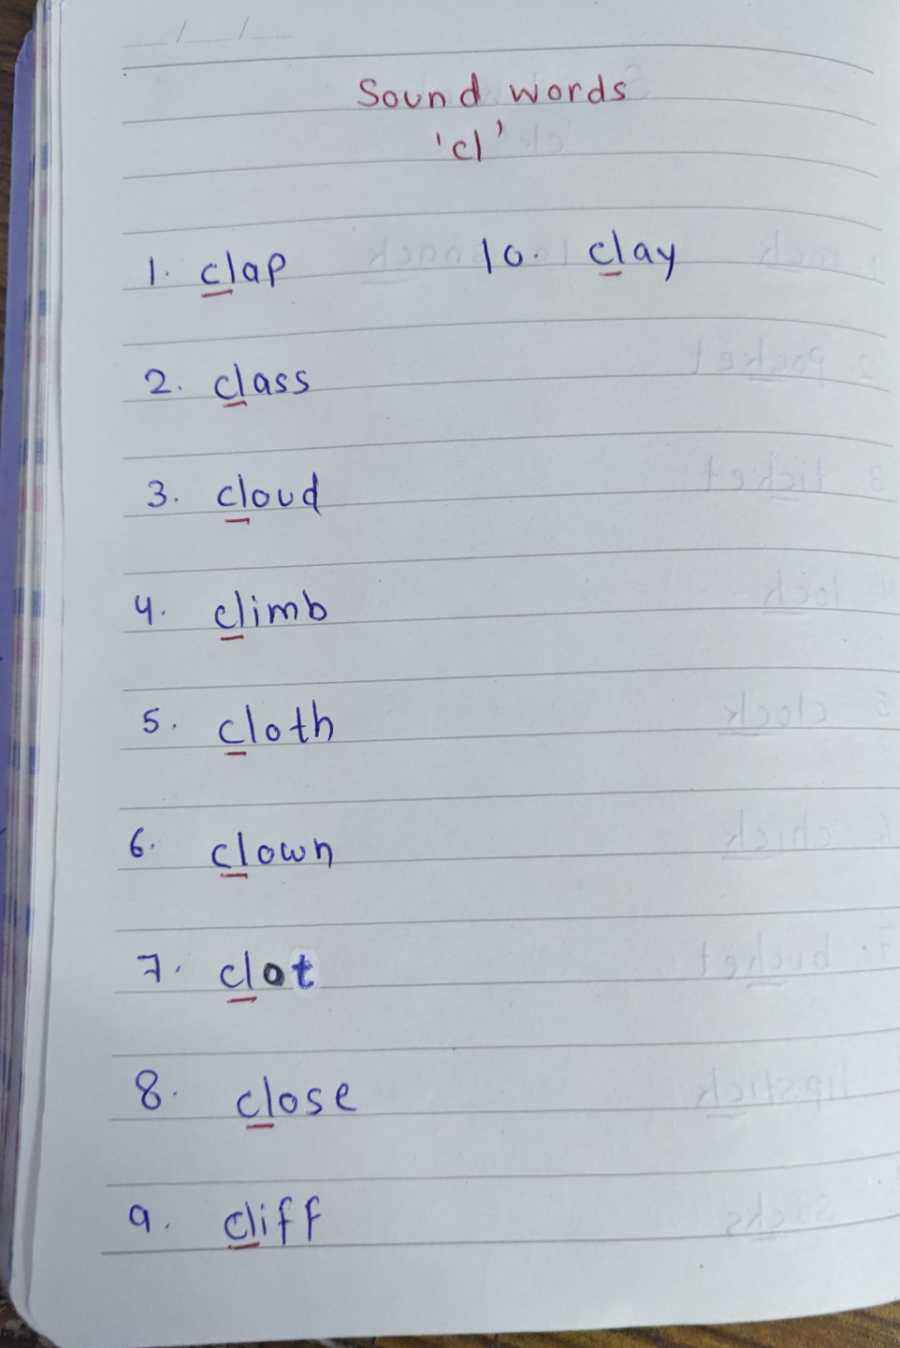 Sound words
'cl'
1. clap
10. clay
2. class
3. cloud
4. climb
5. cloth
6. clown
7. clot
8. close
9. cliff